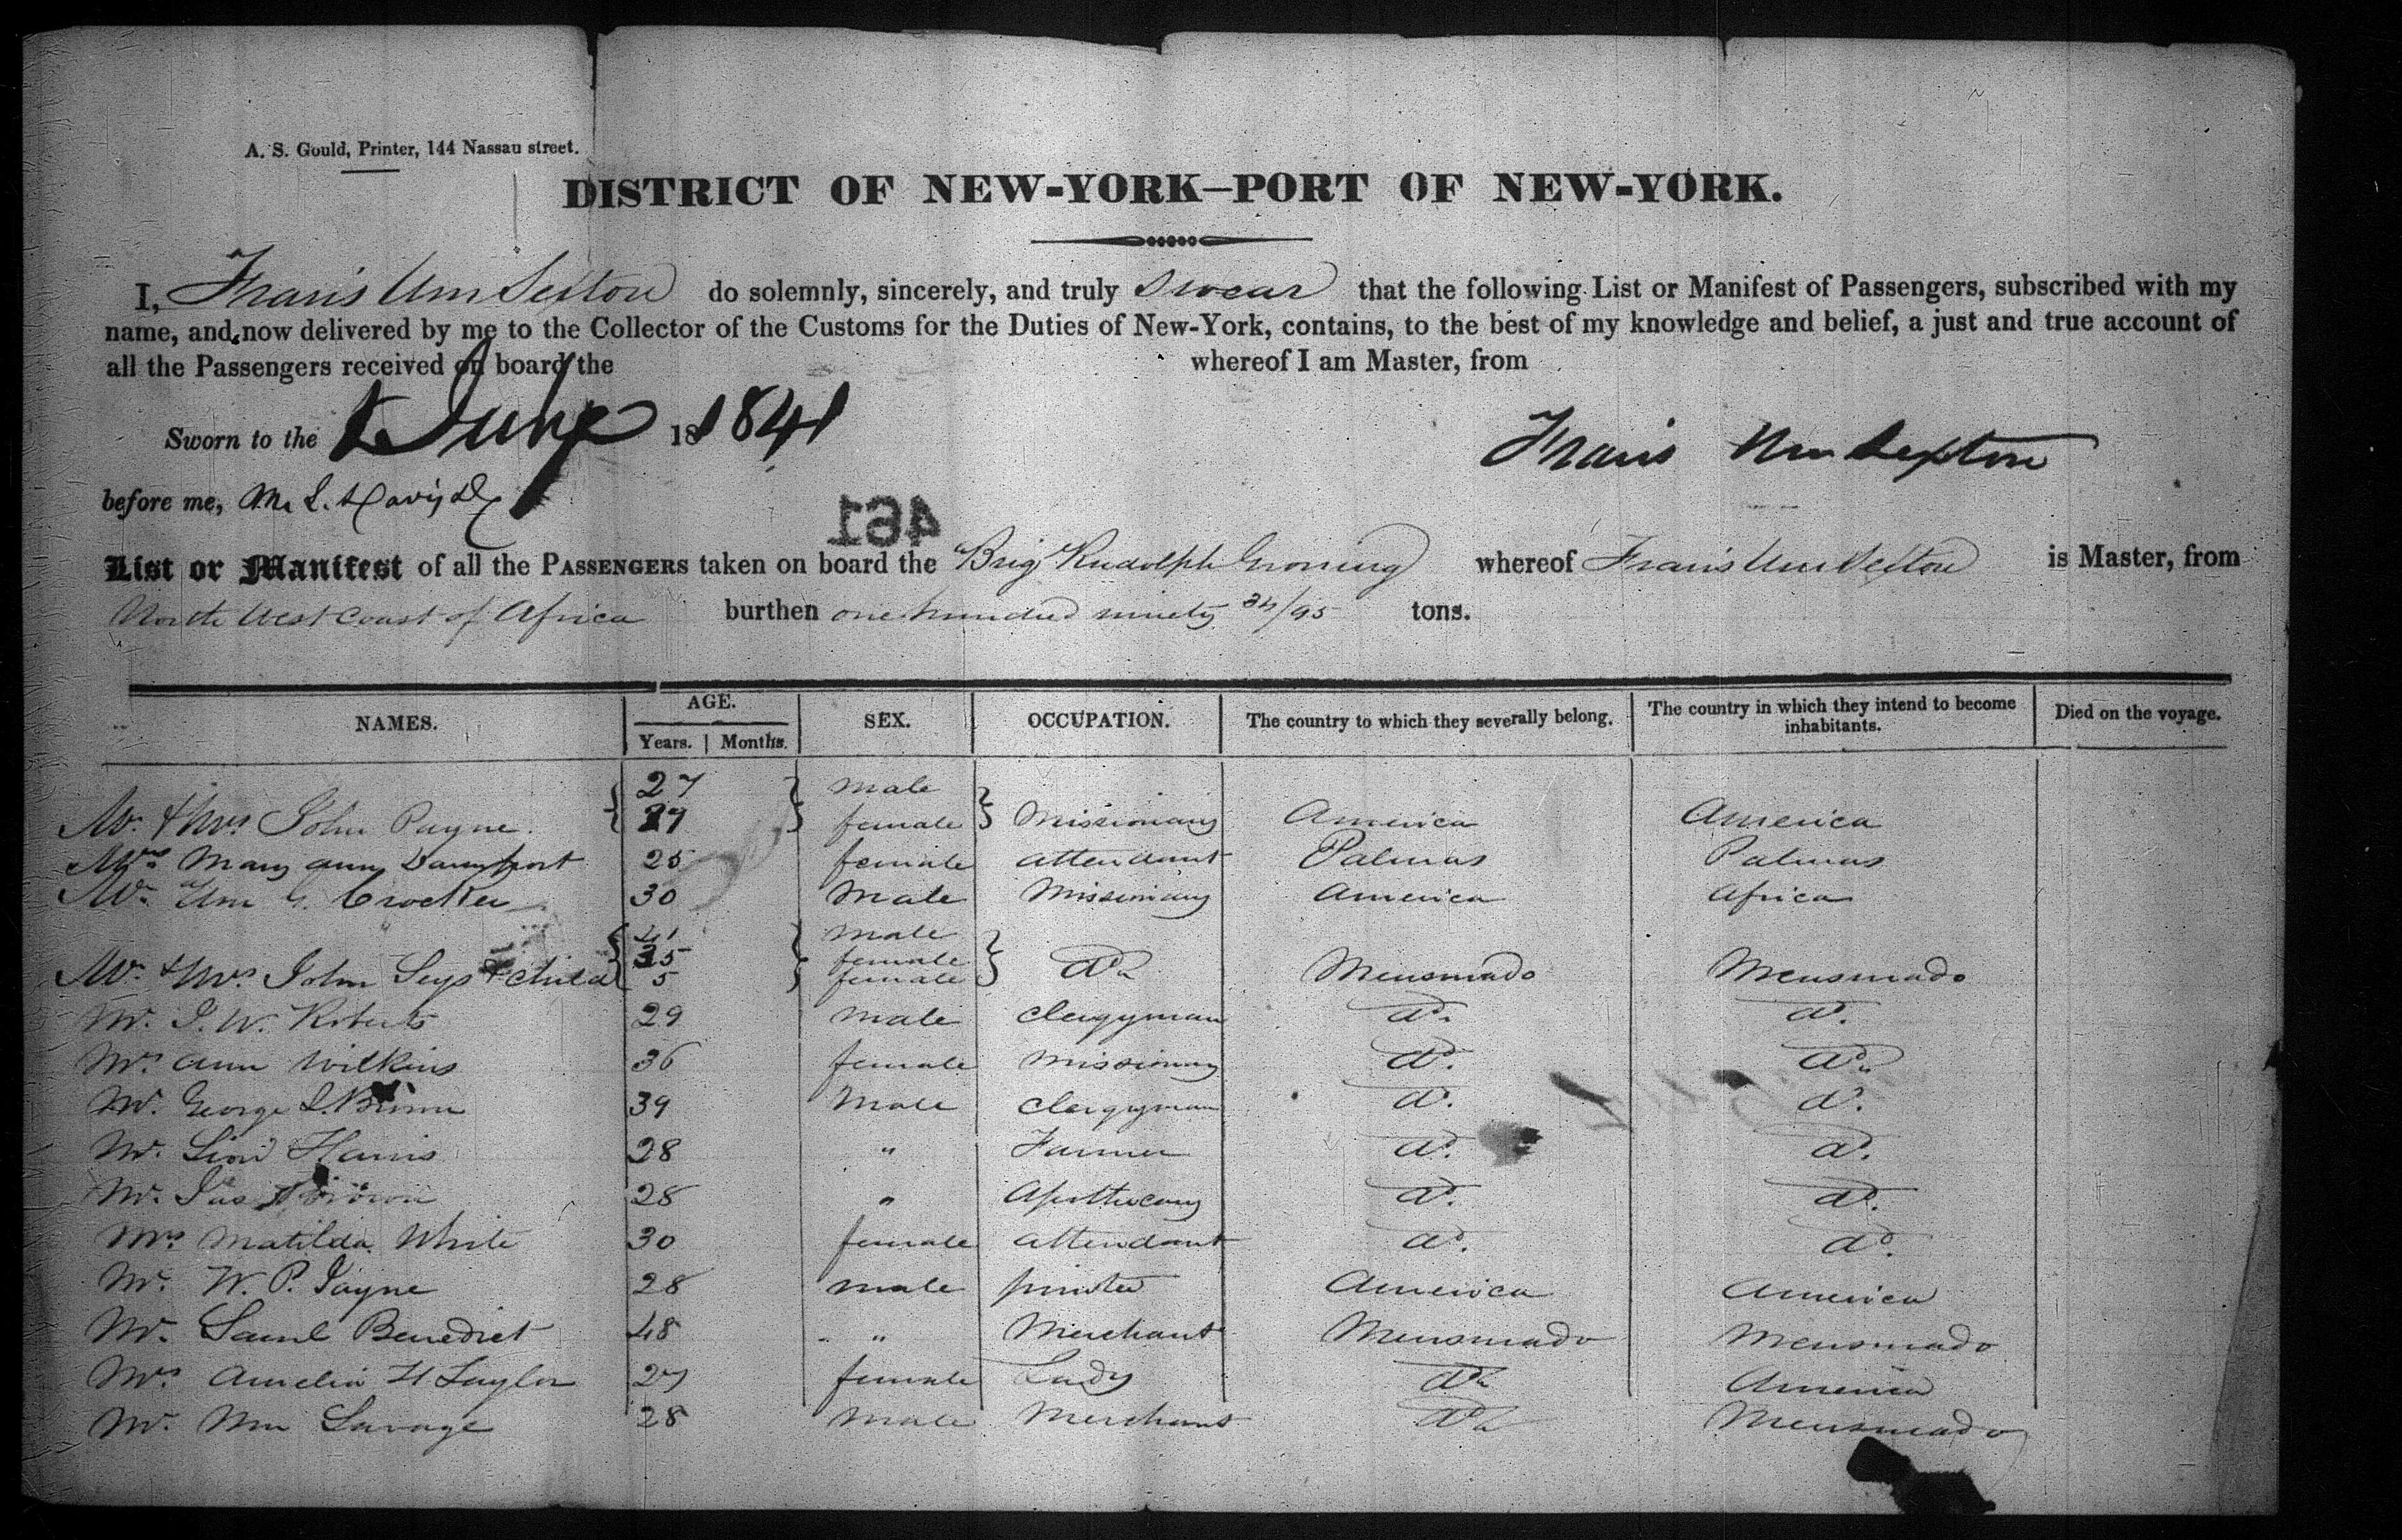 A. S. Gould, Printer, 144 Nassau street.
DISTRICT OF NEW-YORK—PORT OF NEW-YORK.
I, Frans Wm Sexton do solemnly, sincerely, and truly swear that the following List or Manifest of Passengers, subscribed with my
name, and now delivered by me to the Collector of the Customs for the Duties of New-York, contains, to the best of my knowledge and belief, a just and true account of
all the Passengers received on board the whereof I am Master, from
Sworn to the June 18 1841
Frans Wm Sexton
before me, M. L. Davis
461
List or Manifest of all the PASSENGERS taken on board the Brig Rudolph Groning whereof Frans Wm Sexton is Master, from
North West Coast of Africa burthen one hundred ninety 34/95 tons.
NAMES. AGE. Years. Months. SEX. OCCUPATION. The country to which they severally belong. The country in which they intend to become inhabitants. Died on the voyage.
27 male
Mr. & Mrs John Payne. 27 female Missionary America America
Mrs Mary ann Davenport 25 female attendant Palmas Palmas
Mr. Wm G. Crocker 30 Male Missionary America Africa
41 male
35 female
Mr. & Mrs. John Seys & child 5 female do Mensurado Mensurado
Mr. J. W. Roberts 29 male Clergyman do. do.
Mrs ann Wilkins 36 female Missionary do. do.
Mr. George S. Brown 39 Male Clergyman do. do.
Mr. Sion Harris 28 " Farmer do. do.
Mr. Jas Brown 28 " Apothecary do. do.
Mrs Matilda White 30 female attendant do. do.
Mr. W. P. Jayne 28 male printer America America
Mr. Saml Benedict 48 " Merchant Mensurado Mensurado
Mrs. Amelia H Taylor 27 female Lady do America
Mr. Wm Savage 28 Male Merchant do Mensurado